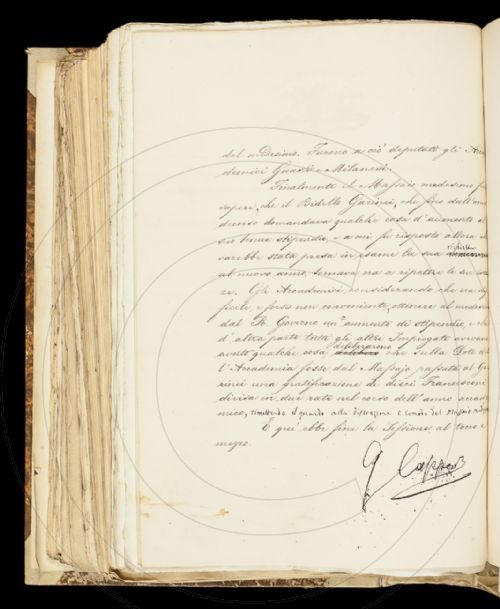 del mDesimo. Furono a ciò deputati gli Acca
demici Guasti e Milanesi.
Finalmente il Massajo medesimo fa
sapere, che il Bidello Garinei, che fino dall'anno
decorso domandava qualche cosa d'aumento al
suo tenue stipendio, e a cui fu risposto allora che
sarebbe stata presa in esame la sua
al nuovo anno, tornava ora a ripetere le sue istan
ze. Gli Accademici considerando che era dif
ficile, e forse non conveniente, ottenere al medesimo
dal R. Governo un aumento di stipendio, e che
d'altra parte tutti gli altri Impiegati avevano
avuto qualche cosa deliberarono che sulla Dote del
l'Accademia fosse dal Massajo passata al Ga
rinei una gratificazione di dieci Francesconi
divisa in due rate nel corso dell'anno accade
mico, rimettendo il quando alla discrezione e senno del Massajo
E qui ebbe fine la Sessione al tocco e
mezzo.
G Capponi